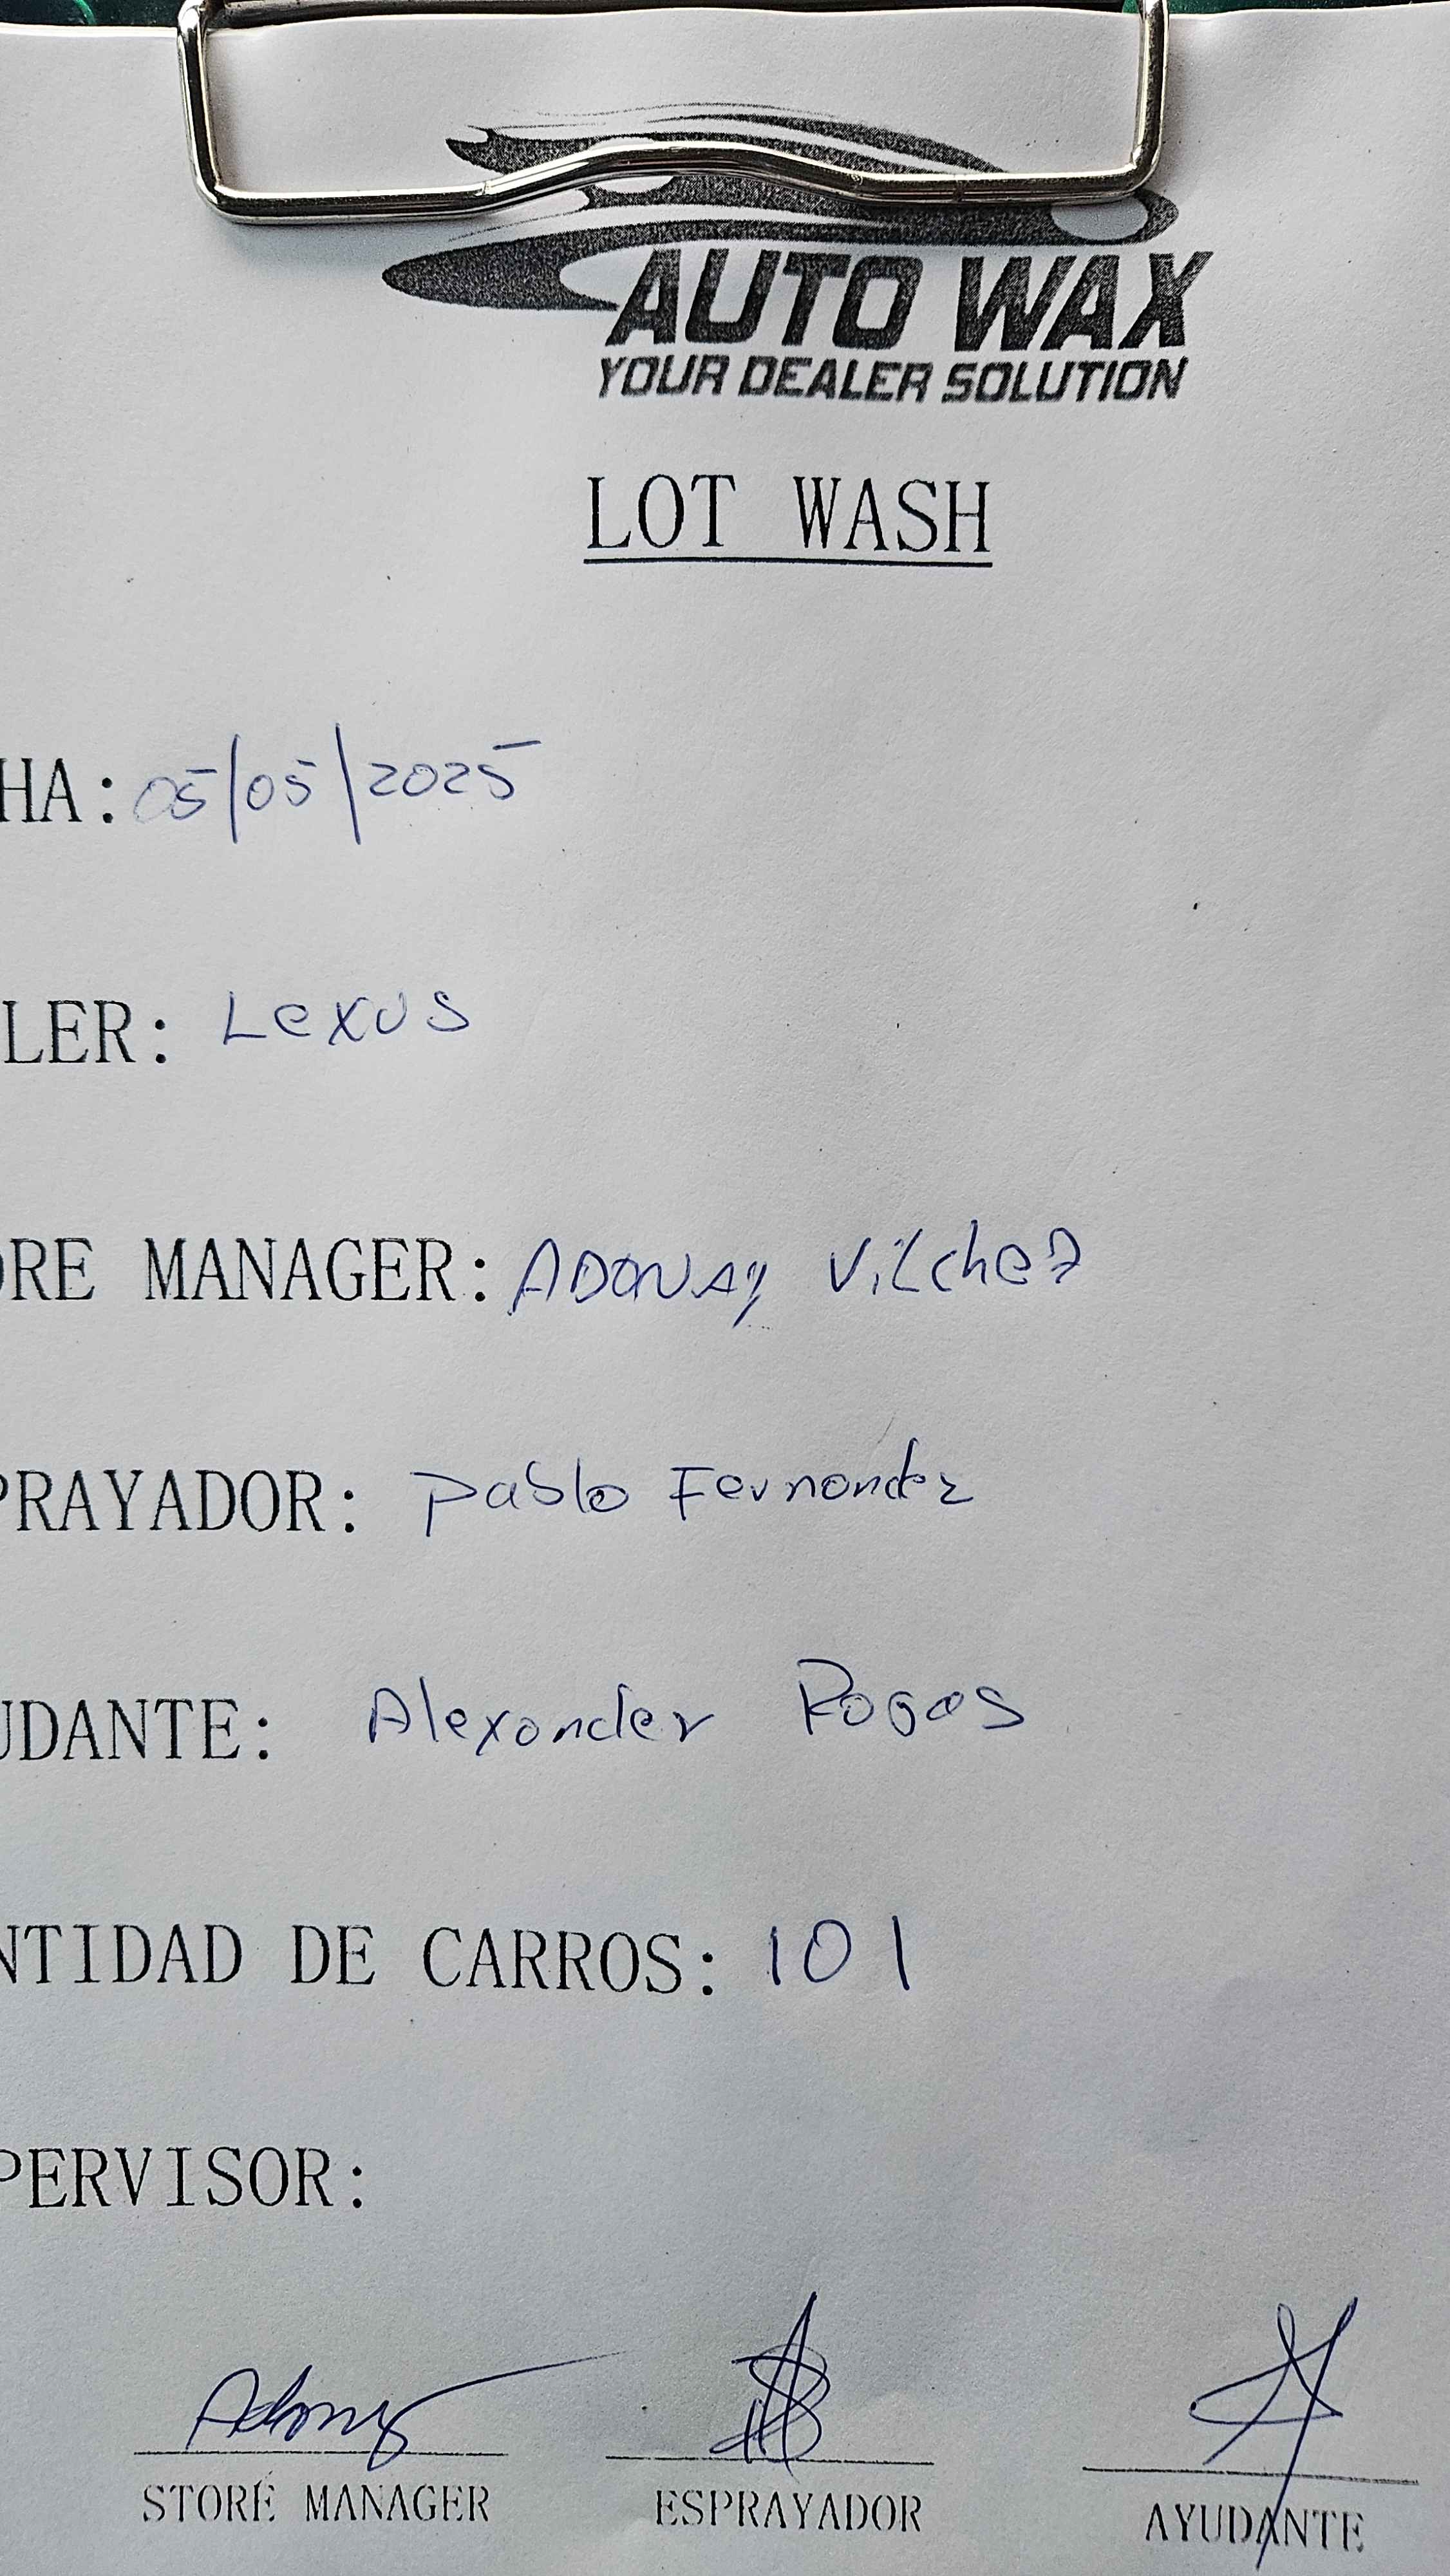 AUTO WAX
YOUR DEALER SOLUTION
LOT WASH
HA: 05/05/2025
LER: Lexus
ORE MANAGER: ADONAY Vilchez
PRAYADOR: Pablo Fernandez
UDANTE: Alexander Rogas
NTIDAD DE CARROS: 101
PERVISOR:
Adonay
STORE MANAGER ESPRAYADOR AYUDANTE